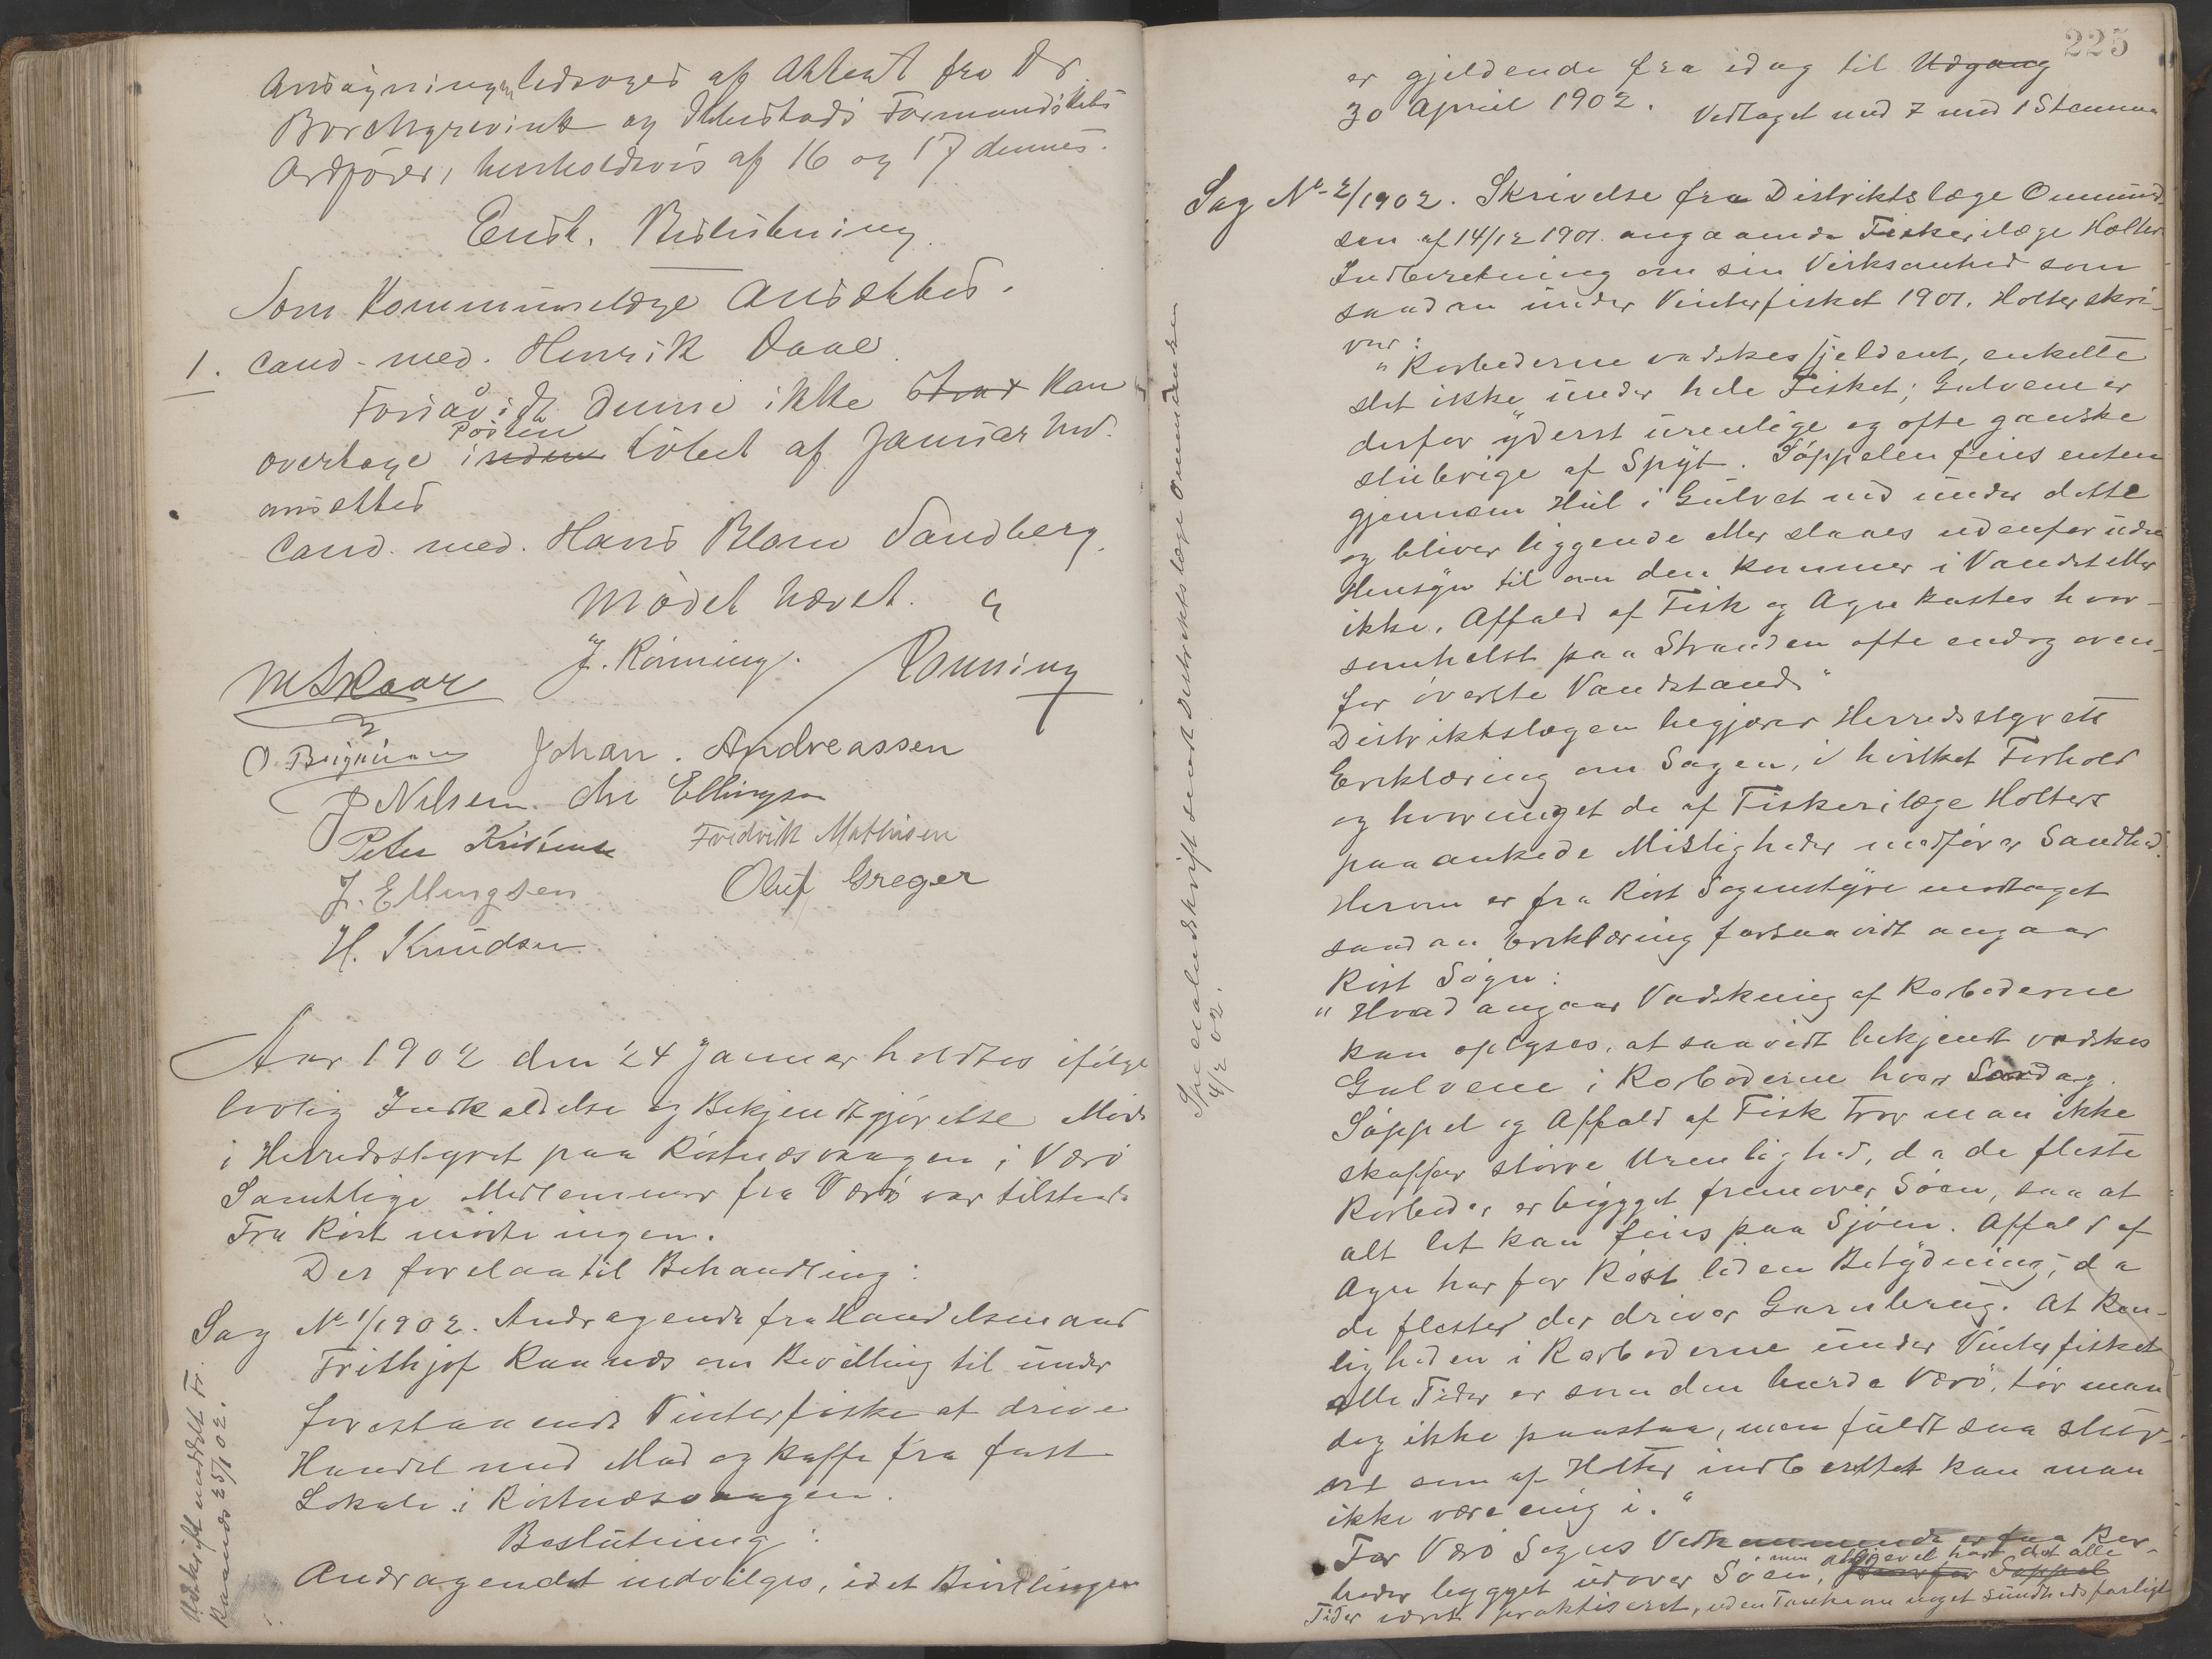 Ansøgningen ledsaget af Attest fra Dr.
Borchgrevink og Ibbestads Formandskabs
Ordfører, henholdsvis af 16 og 17 dennes.
Enst. Beslutning
Som Kommunelæge Ansættes.
1. Cand. med. Henrik Daae
Forsåvidt denne ikke strax kan
overtage Posten inden Løbet af Januar
ansættes
Cand. med. Hans Blom Sandberg.
Mødet hævet.
M Skaar J. Rønning. Rønning
Johan. Andreassen
P Nilsen Chr Ellingsen
Peter Kristensen Fredrik Mathisen
J. Ellingsen Oluf Greger
H. Knudsen
Aar 1902 den 24 Januar holdtes ifølge
lovlig Indkaldelse og Bekjendtgjørelse Møde
i Herredsstyret paa Røstnæsvaagen i Værø
Samtlige Medlemmer fra Værø var tilstede
Fra Røst mødte ingen.
Der forelaa til Behandling:
Sag No 1/1902. Andragende fra Handelsmand
Frithjof Raanæs om Bevilling til under
forestaaende Vinterfiske at drive
Handel med Mad og Kaffe fra fast
Lokale i Røstnæsvaagen.
Beslutning:
Andragendet indvilges, idet Bevillingen
Udskrift meddelt Fr.
Raanæs 25/1 02.
225
er gjeldende fra idag til Udgang
30 April 1902. Vedtaget med 7 mod 1 Stemme
Sag No 2/1902. Skrivelse fra Distriktslæge Ommund-
sen af 14/12 1901 angaaende Fiskerilæge Holters
Indberetning om sin Virksomhed som
saadan under Vinterfisket 1901. Holter skri-
ver:
"Rorboderne vadskes sjeldent, enkelte
slet ikke under hele Fisket; Gulvene er
derfor yderst urenlige og ofte ganske
slubrige af Spyt. Søppelen feies enten
gjennem Hul i Gulvet ned under dette
og bliver liggende eller slaaes udenfor uden
Hensyn til om den kommer i Vandet eller
ikke. Affald af Fisk og Agn kastes hvor-
somhelst paa Stranden ofte endog oven-
for øverste Vandstand"
Distriktslægen begjærer Herredsstyrets
Erklæring om Sagen, i hvilket Forhold
og hvormeget de af Fiskerilæge Holters
paaankede Misligheder medfører Sandhed.
Herom er fra Røst Sognestyre modtaget
saadan Erklæring forsaavidt angaar
Røst Sogn:
"Hvad angaar Vadskning af Rorboderne
kan oplyses, at saavidt bekjendt vadskes
Gulvene i Rorboderne hver Søndag.
Søppel og Affald af Fisk tror man ikke
skaffer større Urenlighed, da de fleste
Rorboder er bygget fremover Søen, saa at
alt let kan feies paa Sjøen. Affald af
Agn har for Røst liden Betydning, da
de fleste der driver Garnbrug. At Ren-
ligheden i Rorboderne under Vinterfisket
alle Tider er som den burde være, tør man
dog ikke paastaa, men fuldt saa slur-
vet som af Holter indberettet kan man
ikke være enig i."
For Værø Sogns Vedkommende er fra Ror-
boder bygget udover Søen, men alligevel har det alle
Derfor Søppel
Tider været praktiseret, uden Tanke om noget sundhedsfarligt
Specialudskrift sendt Distriktslæge Ommundsen
4/2 02.